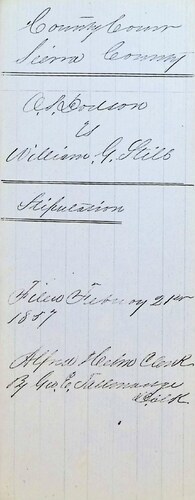 County Cour
Sierra County
C. S. Dodson
vs
William G. Still
Stipulation
Filed Febru'y 21st
1857
Alfred Helm Clerk
By Geo. C.